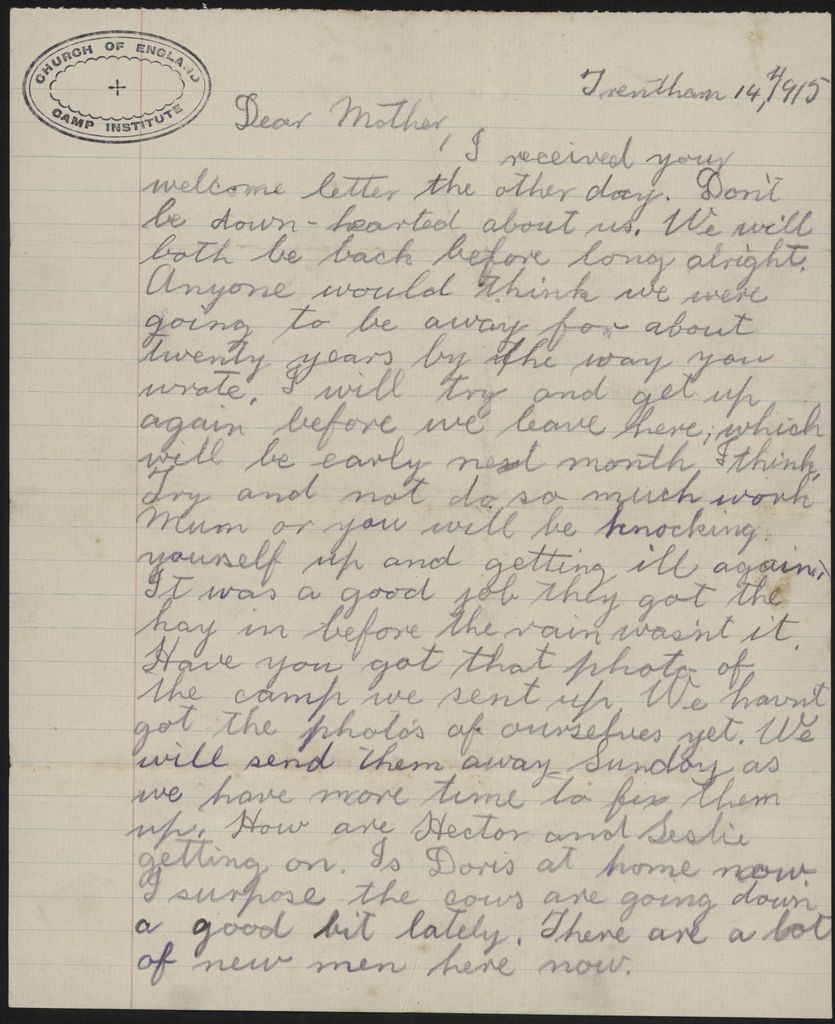 CHURCH OF ENGLAND
CAMP INSTITUTE
Trentham 14/4/1915
Dear Mother,
I received your
welcome letter the other day. Don't
be down-hearted about us. We will
both be back before long alright.
Anyone would think we were
going to be away for about
twenty years by the way you
wrote. I will try and get up
again before we leave here, which
will be early next month I think.
Try and not do so much work
Mum or you will be knocking
yourself up and getting ill again.
It was a good job they got the
hay in before the rain wasn't it.
Have you got that photo of
the camp we sent up. We havn't
got the photo's of ourselves yet. We
will send them away Sunday as
we have more time to fix them
up. How are Hector and Leslie
getting on. Is Doris at home now
I surpose the cows are going down
a good bit lately. There are a lot
of new men here now.